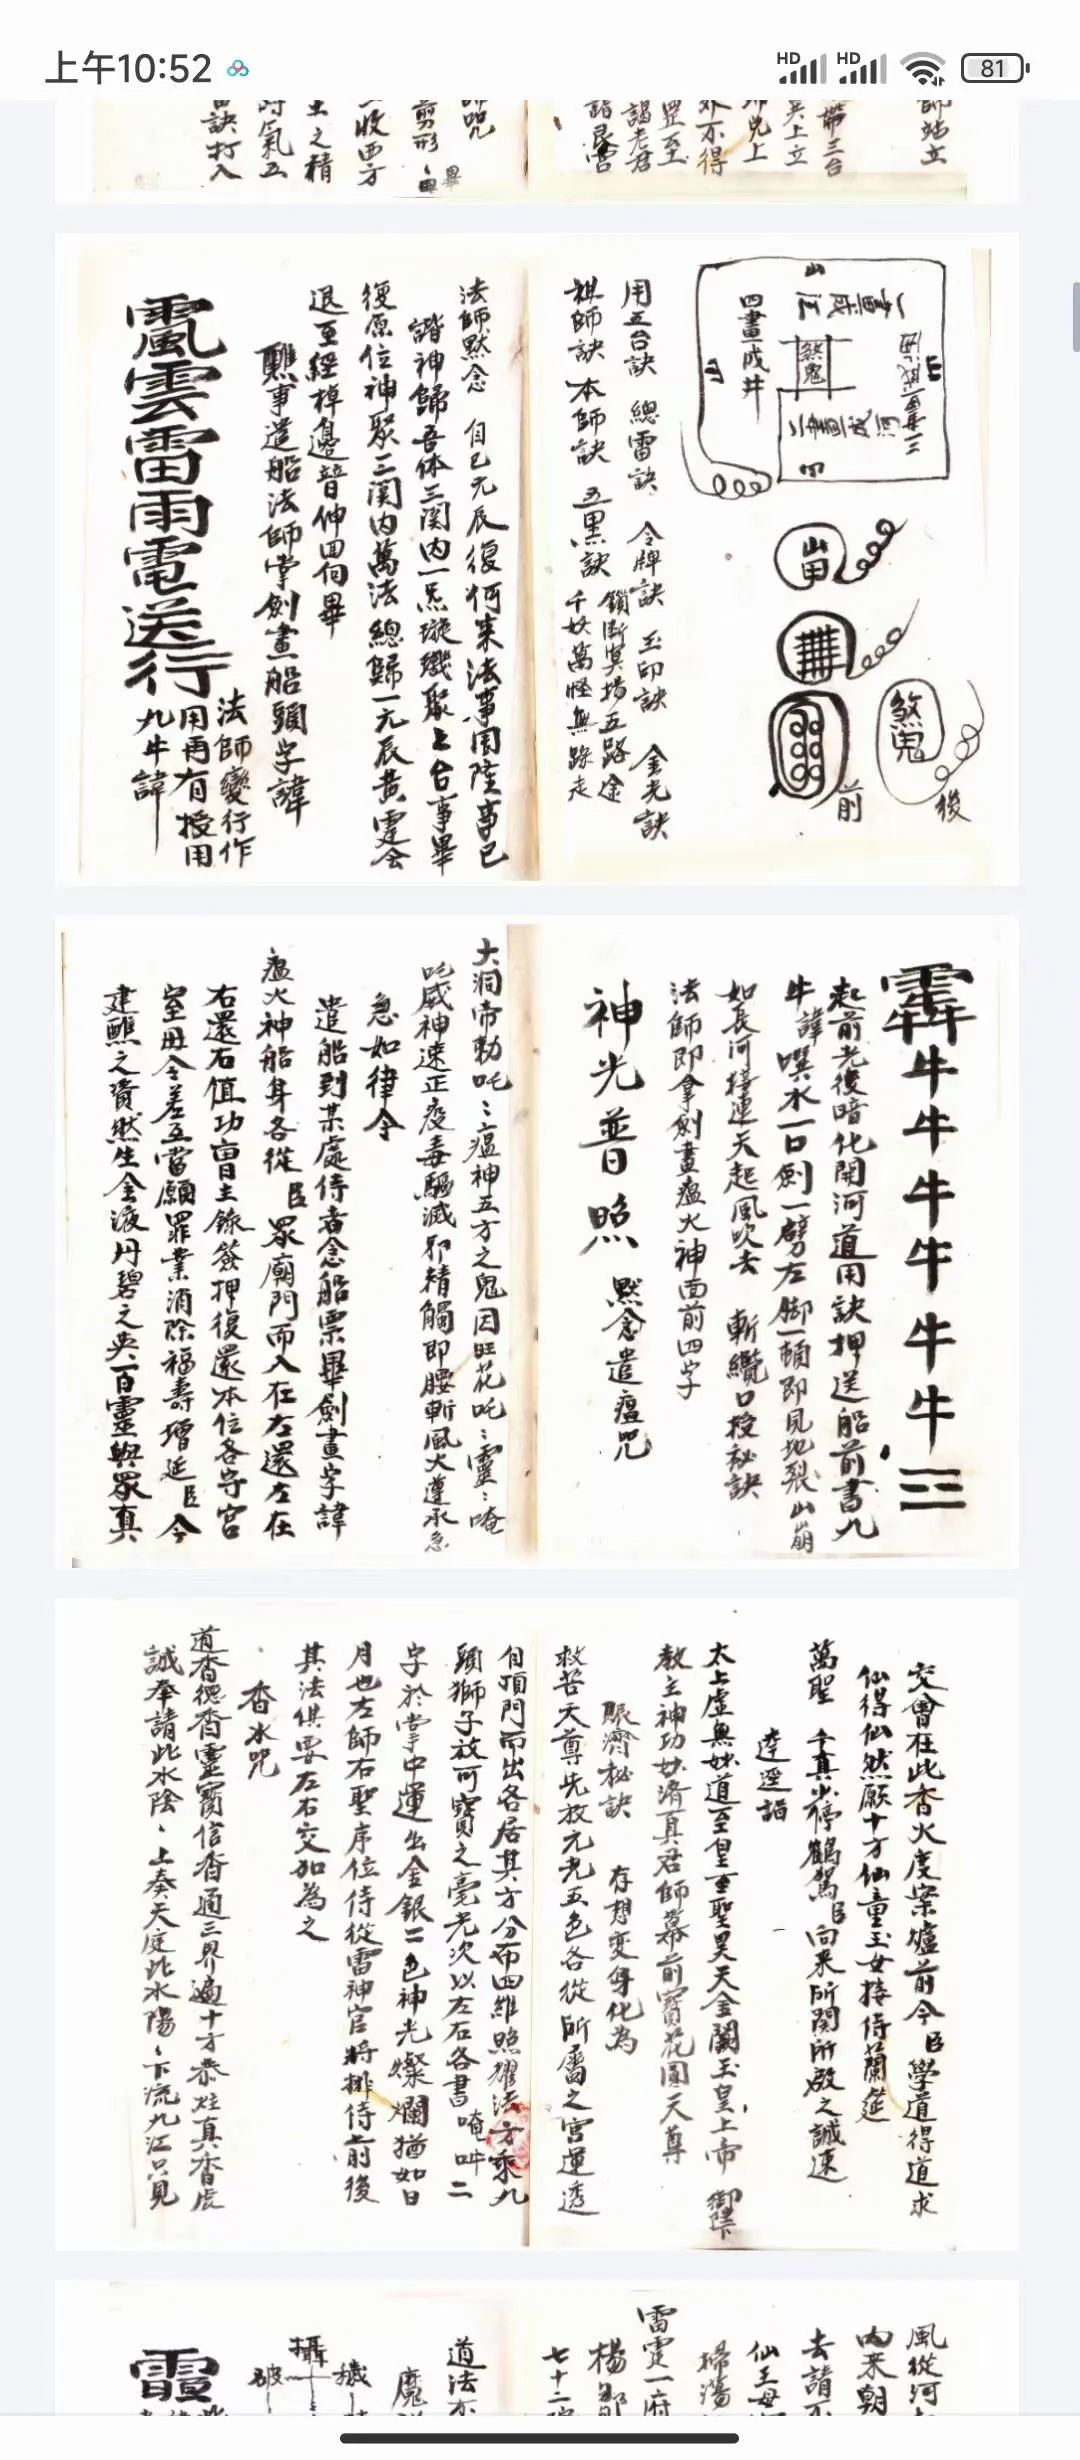 上午10:52
HD
HD
81
師站立
帶三台
吳上立
外不得
罡至
謁老君
師咒
剪形
畢
收西方
之精
時氣五
訣打入
山
四畫成井
煞鬼
煞鬼
後
前
用五台訣 總雷訣 令牌訣 玉印訣 金光訣
祖師訣 本師訣 五黑訣 鎖斷冥揚五路途
千妖萬怪無路走
法師默念 自己元辰復何來法事周陸事已
諧神歸吾体三関内一炁璇璣聚上台事畢
復原位神聚二関内萬法總歸一元辰黄雯会
退至經棹邊普伸回向畢
醮事造船法師掌劍畫船頭字諱
風雲雷雨電送行
法師變行作
用再有授用
九牛諱
牛牛牛牛牛牛
起前光後暗化開河道用訣押送船前書九
牛諱噀水一口劍一劈左脚一頓即見地裂山崩
如長河接連天起風吹去 斬纜口授秘訣
法師即拿劍畫瘟火神面前四字
神光普照 默念遣瘟咒
大洞帝勅吒〻瘟神五方之鬼因旺花吒〻靈〻唵
吒威神速正疫毒驅滅邪精觸即腰斬風火遵承急
急如律令
遣船到某處侍者念船票畢劍畫字諱
瘟火神船身各從臣眾廟門而入在左還左在
右還右值功曹主錄簽押復還本位各守宮
室毋令差互當願罪業消除福壽增延臣今
建醮之資然生金液丹碧之英百靈與眾真
交會在此香火度案爐前今臣學道得道求
仙得仙然願十方仙童玉女接侍蘭筵
萬聖千真少停鶴駕臣向来所関所啟之誠速
逵逕詣
太上虛無妙道至皇至聖昊天金闕玉皇上帝 御陛下
教主神功妙濟真君師幕前寶花圓天尊
賑濟秘訣 存想變身化為
救苦天尊先放元光五色各從所屬之宮運透
自頂門而出各居其方分布四維照耀法方乘九
頭獅子放可寶之毫光次以左右各書唵吽二
字於掌中運出金銀二色神光燦爛猶如日
月也左師右聖序位侍從雷神官將排侍前後
其法俱要左右交加為之
香水咒
道香德香靈寶信香通三界遍十方恭炷真香虔
誠奉請此水陰〻上奏天庭此水陽〻下流九江只見
風從河
内来朝
去請不
仙王母
掃蕩
雷霆一府
楊
七十二
道法
魔
攝
穢
破